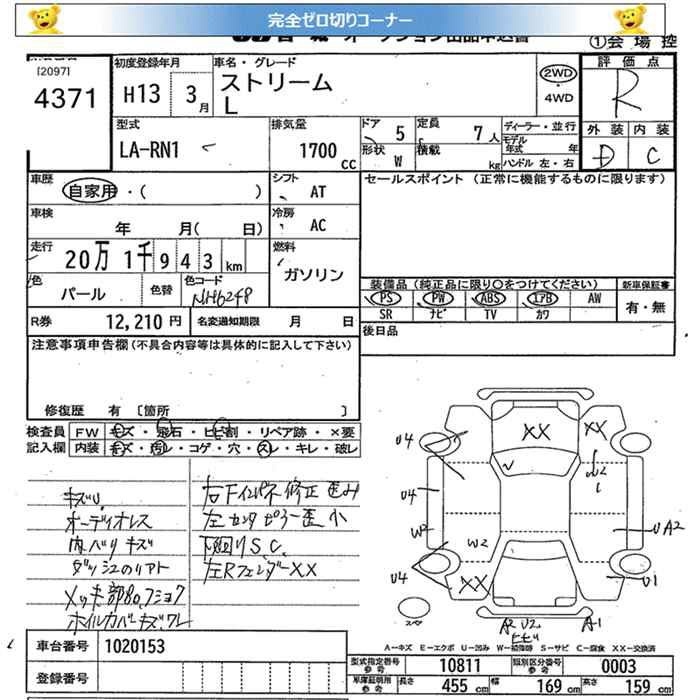 完全ゼロ切りコーナー
①会場控
[2097]
4371
初度登録年月
H13 3月
車名・グレード
ストリーム
L
2WD
・4WD
評価点
R
外装 内装
D C
型式
LA-RN1
排気量
1700 CC
ドア 5
定員 7人
形状 W
積載 kg
ディーラー・並行
モデル年式 年
ハンドル 左・右
車歴
自家用・( )
シフト
AT
セールスポイント (正常に機能するものに限ります)
車検
年 月( 日)
冷房
AC
走行
20万1千943km
燃料
ガソリン
色
パール
色替
色コード
NH624P
装備品(純正品に限り○をつけてください)
新車保証書
PS PW ABS エアB AW
SR ナビ TV カワ
有・無
R券 12,210円
名変通知期限 月 日
後日品
注意事項申告欄(不具合内容等は具体的に記入して下さい)
修復歴 有 [箇所 ]
検査員 FW キズ・飛石・ヒビ割・リペア跡・×要
記入欄 内装 キズ・汚レ・コゲ・穴・スレ・キレ・破レ
キズU.
オーディオレス
内ハリキズ
メッキ部
ホイルカバーキズ,ワレ
右Fインパネ修正 歪み
左センタピラー歪 小
下回りS.C.
左RフェンダーXX
XX
XX
U4
U2
U4
W2
W2
UA2
U4
XX
U1
A2 U2
ヒビ
A1
スペ
A-キズ E-エクボ U-凹み W-補修跡 S-サビ C-腐食 XX-交換済
車台番号 1020153
登録番号
型式指定番号 参考 10811
類別区分番号 参考 0003
車庫証明用 参考 長さ 455cm 幅 169cm 高さ 159cm